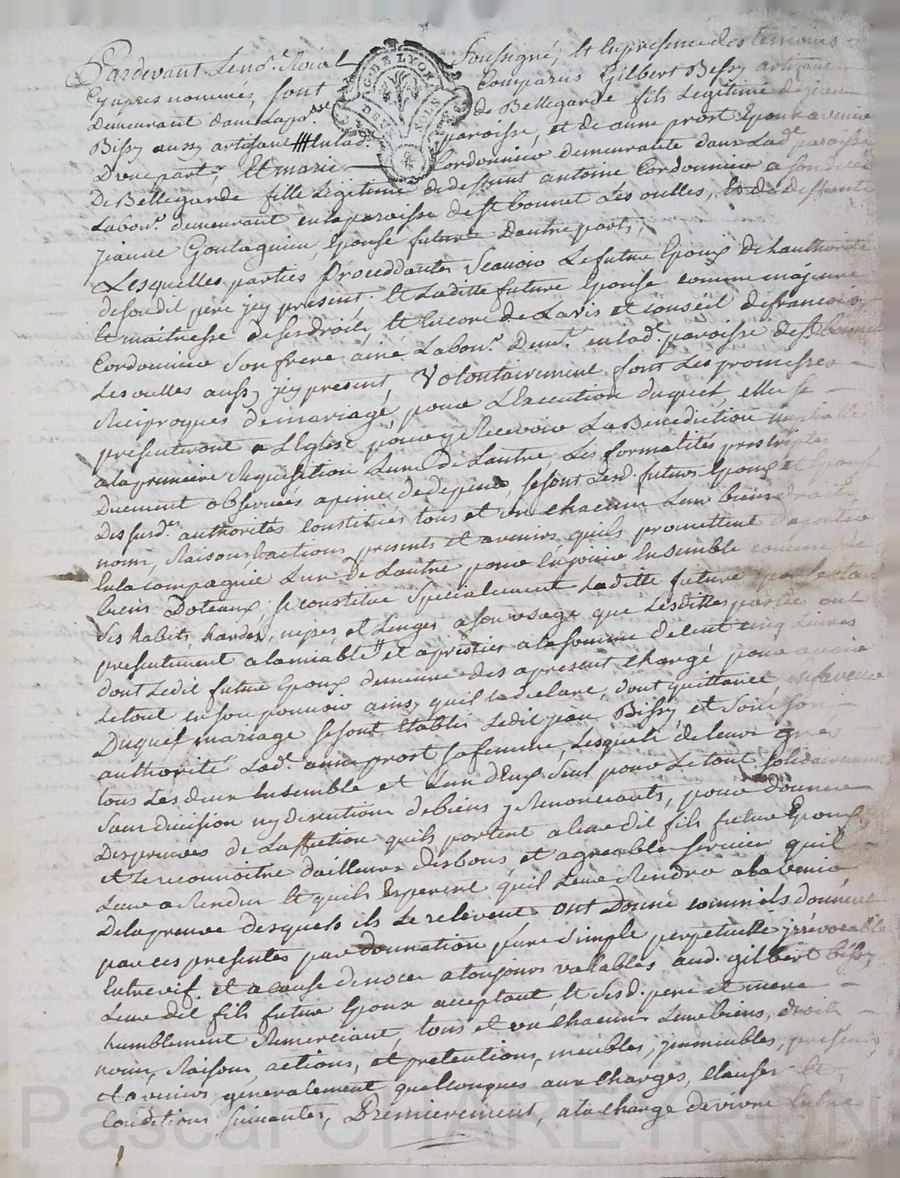 Pardevant Le no.re Royal Soussigné, et En presence des temoins
Cy apres nommés, sont Comparus Gilbert Bissy artisane
demeurant dans la par.sse de Bellegarde fils Legitime de jean
Bissy aussy artisane en lad. paroisse, et de anne prost Epoux avenir
D'une part, Et marie Cordonnier demeurante dans Lad. paroisse
De Bellegarde fille Légitime de deffunt antoine Cordonnier a son
Labou.r demeurant en la paroisse de st bonnet Les oulles, et de deffunte
jeanne Goutagnieu, Epouse future D'autre part;
Lesquelles parties proceddantes Scavoir Le future Epoux de L'authorité
de son dit pere jcy present, et Laditte future Epouse comme majeure
et maitresse de ses droits, et Encore de L'avis et Conseil de francois
Cordonnier Son frere ainé Labou.r Dem.t en lad. paroisse de st bonnet
Les oulles aussy jcy present, Volontairement font Les promesses
Reciproques de mariage, pour L'Execution duquel, elles se
presenteront a L'Eglise pour y Recevoir La Benediction nuptialle
a la premiere Requisition L'une De Lautre Les formalités prescriptes
Duement observées a peine de depens, se sont Lesd. futurs Epoux et Epouse
Des susd. authorités constitués tous et un chacuns Leur biens droits
noms, Raisons, actions, presents et avenirs quils promettent d'aporter
En la compagnie L'un De Lautre pour En jouir Ensemble comme de
biens Doteaux, se constitue Specialement Laditte future
Ses habits, hardes, nipes et Linges a son usage que Lesdittes parties ont
presentement a lamiable et apreciés a la somme de Cent cinq Livres
dont Ledit future Epoux demeure des apresent Chargé pour avoir
Le tout en son pouvoir ainsy quil la declare, dont quittance, en faveur
Duquel mariage se sont Etablis Ledit jean Bissy, et Sous son
authorité Lad. anne prost sa femme, Lesquels de leurs grés
tous Les deux Ensemble et L'un d'Eux Seul pour Le tout Solidairement
Sans division ny discution de biens y Renoncants, pour donner
Des preuves de Laffection quils portent a Leur dit fils future Epoux
et Le reconnoitre d'ailleurs des bons et agreable services quil
Leur a Rendu et quils Esperent quil Leur Rendra a lavenir
De la preuve desquels ils Le relevent ont Donné comme ils donnent
par ces presentes par donnation pure Simple perpetuelle jrrévocable
Entre vif et a cause de noces a toujours valables aud. gilbert bissy
Leur dit fils future Epoux acceptant, et Sesd. pere et mere
humblement Remerciant, tous et un chacuns Leur biens, droits
noms, Raisons, actions, et pretentions, meubles, jmmeubles, presents
et avenirs generalement quelconques aux Charges, Clauses et
Conditions Suivantes, Premierement, a la charge de vivre Entre
Pascal CHAREYRON